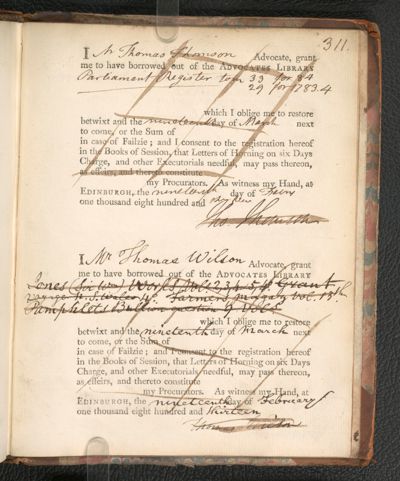 311.
I Mr Thomas Thomson Advocate, grant
me to have borrowed out of the ADVOCATES LIBRARY
Parliament Register tom 33 for 84
29 for 1783.4
which I oblige me to restore
betwixt and the nineteenth day of March next
to come, or the Sum of
in case of Failzie; and I consent to the registration hereof
in the Books of Session, that Letters of Horning on six Days
Charge, and other Executorials needful, may pass thereon,
as effeirs, and thereto constitute
my Procurators. As witness my Hand, at
EDINBURGH, the nineteenth day of Feby
one thousand eight hundred and
Tho Thomson
I Mr Thomas Wilson
Advocate, grant
me to have borrowed out of the ADVOCATES LIBRARY
Jones (Sir Wm) Works Vol: 2 3 4 5 & Grant
Farmers magaz vol. 13th
Pamphlets Bullion question 9 Vols
which I oblige me to restore
betwixt and the nineteenth day of March next
to come, or the Sum of
in case of Failzie; and I consent to the registration hereof
in the Books of Session, that Letters of Horning on six Days
Charge, and other Executorials needful, may pass thereon,
as effeirs, and thereto constitute
my Procurators. As witness my Hand, at
EDINBURGH, the nineteenth day of February
one thousand eight hundred and thirteen
Thomas Wilson